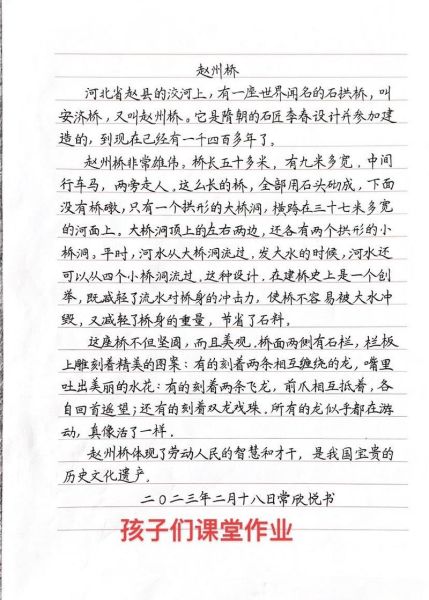 赵州桥
河北省赵县的洨河上，有一座世界闻名的石拱桥，叫
安济桥，又叫赵州桥。它是隋朝的石匠李春设计并参加建
造的，到现在已经有一千四百多年了。
赵州桥非常雄伟。桥长五十多米，有九米多宽，中间
行车马，两旁走人。这么长的桥，全部用石头砌成，下面
没有桥墩，只有一个拱形的大桥洞，横跨在三十七米多宽
的河面上。大桥洞顶上的左右两边，还各有两个拱形的小
桥洞。平时，河水从大桥洞流过，发大水的时候，河水还
可以从四个小桥洞流过。这种设计，在建桥史上是一个创
举，既减轻了流水对桥身的冲击力，使桥不容易被大水冲
毁，又减轻了桥身的重量，节省了石料。
这座桥不但坚固，而且美观。桥面两侧有石栏，栏板
上雕刻着精美的图案：有的刻着两条相互缠绕的龙，嘴里
吐出美丽的水花；有的刻着两条飞龙，前爪相互抵着，各
自回首遥望；还有的刻着双龙戏珠。所有的龙似乎都在游
动，真像活了一样。
赵州桥体现了劳动人民的智慧和才干，是我国宝贵的
历史文化遗产。
二〇二三年二月十八日常欣悦书
孩子们课堂作业